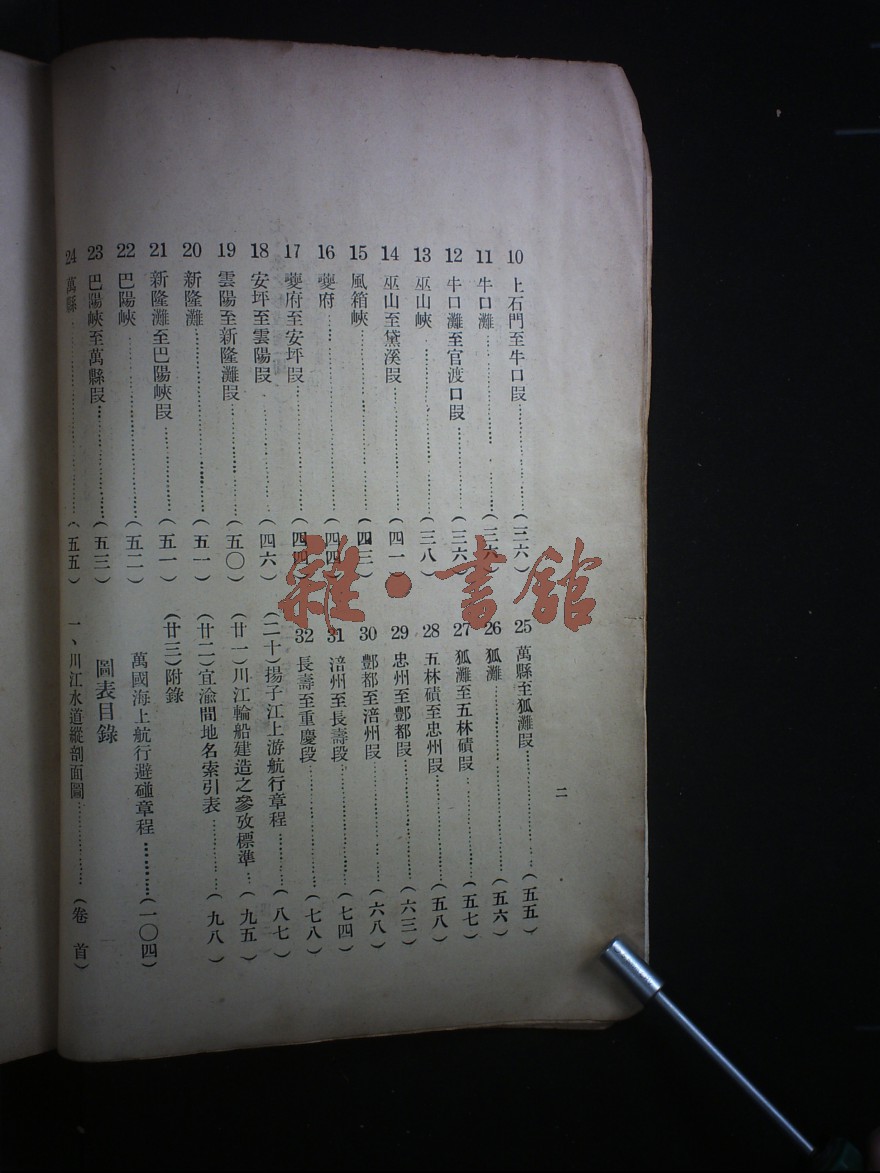 10 上石門至牛口段……(三六)
11 牛口灘……(三六)
12 牛口灘至官渡口段……(三六)
13 巫山峽……(三八)
14 巫山至黛溪段……(四一)
15 風箱峽……(四三)
16 夔府……(四四)
17 夔府至安坪段……(四四)
18 安坪至雲陽段……(四六)
19 雲陽至新隆灘段……(五〇)
20 新隆灘……(五一)
21 新隆灘至巴陽峽段……(五一)
22 巴陽峽……(五二)
23 巴陽峽至萬縣段……(五三)
24 萬縣……(五五)
25 萬縣至狐灘段……(五五)
26 狐灘……(五六)
27 狐灘至五林磧段……(五七)
28 五林磧至忠州段……(五八)
29 忠州至酆都段……(六三)
30 酆都至涪州段……(六八)
31 涪州至長壽段……(七四)
32 長壽至重慶段……(七八)
(二十)揚子江上游航行章程……(八七)
(廿一)川江輪船建造之參攷標準……(九五)
(廿二)宜渝間地名索引表……(九八)
(廿三)附錄
萬國海上航行避碰章程……(一〇四)
圖表目錄
一、川江水道縱剖面圖……(卷首)
二
雜·書館